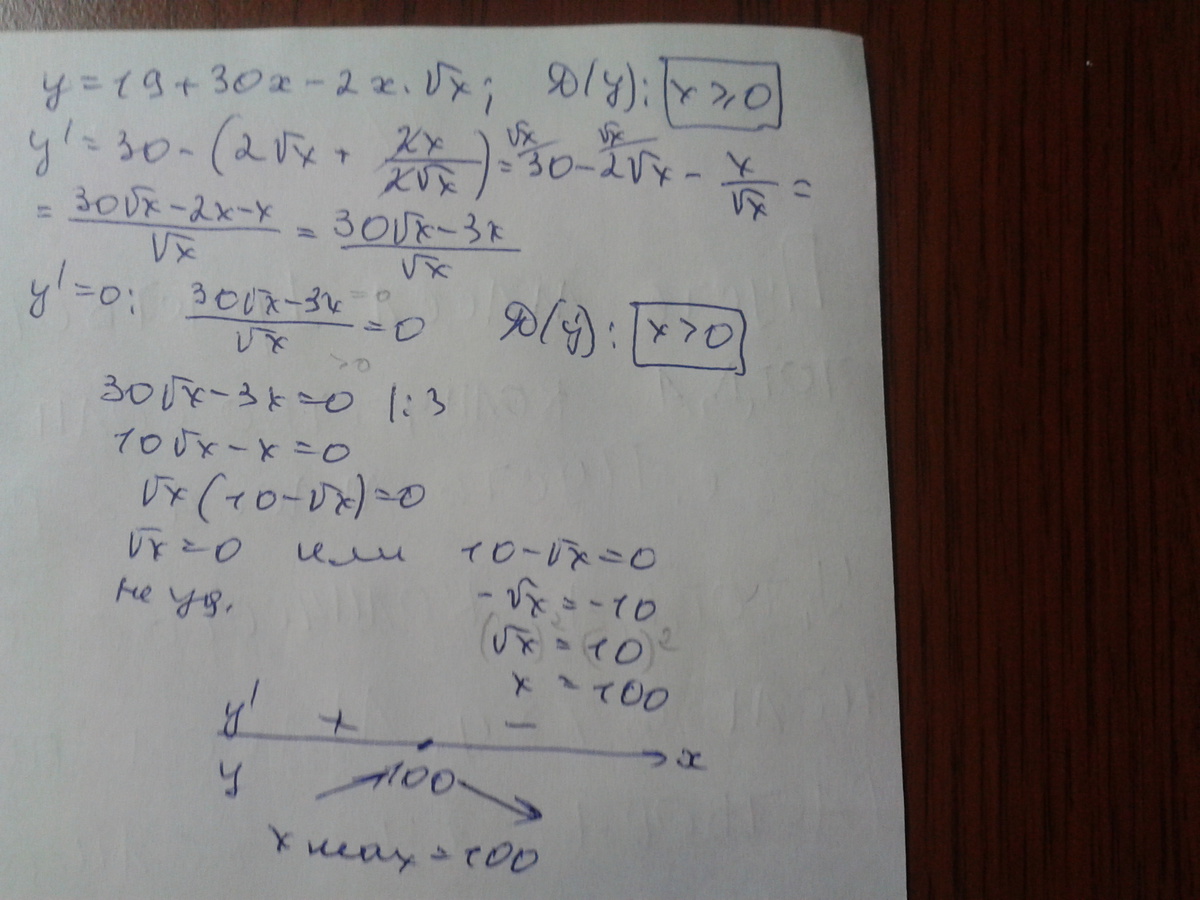 y = 19 + 30x - 2x · √x; D(y): x ≥ 0
y' = 30 - (2√x + 2x/2√x) = √x/ 30 - √x/ 2√x - x/√x =
= (30√x - 2x - x)/√x = (30√x - 3x)/√x
y' = 0: (30√x - 3x)/√x = 0 = 0 > 0 D(y'): x > 0
30√x - 3x = 0 |: 3
10√x - x = 0
√x (10 - √x) = 0
√x = 0 или 10 - √x = 0
не уд. -√x = -10
(√x)² = (10)²
x = 100
y' + -
x
y 100
x max = 100